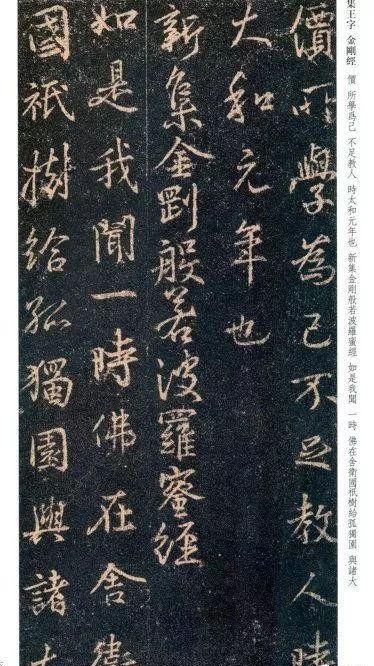 集王字 金剛經 價 所學爲己 不足教人 時太和元年也 新集金剛般若波羅蜜經 如是我聞 一時 佛在舍衛國祇樹給孤獨園 與諸大
價所學為己不足教人時
大和元年也
新集金剛般若波羅蜜經
如是我聞一時佛在舍衛
國祇樹給孤獨園與諸大